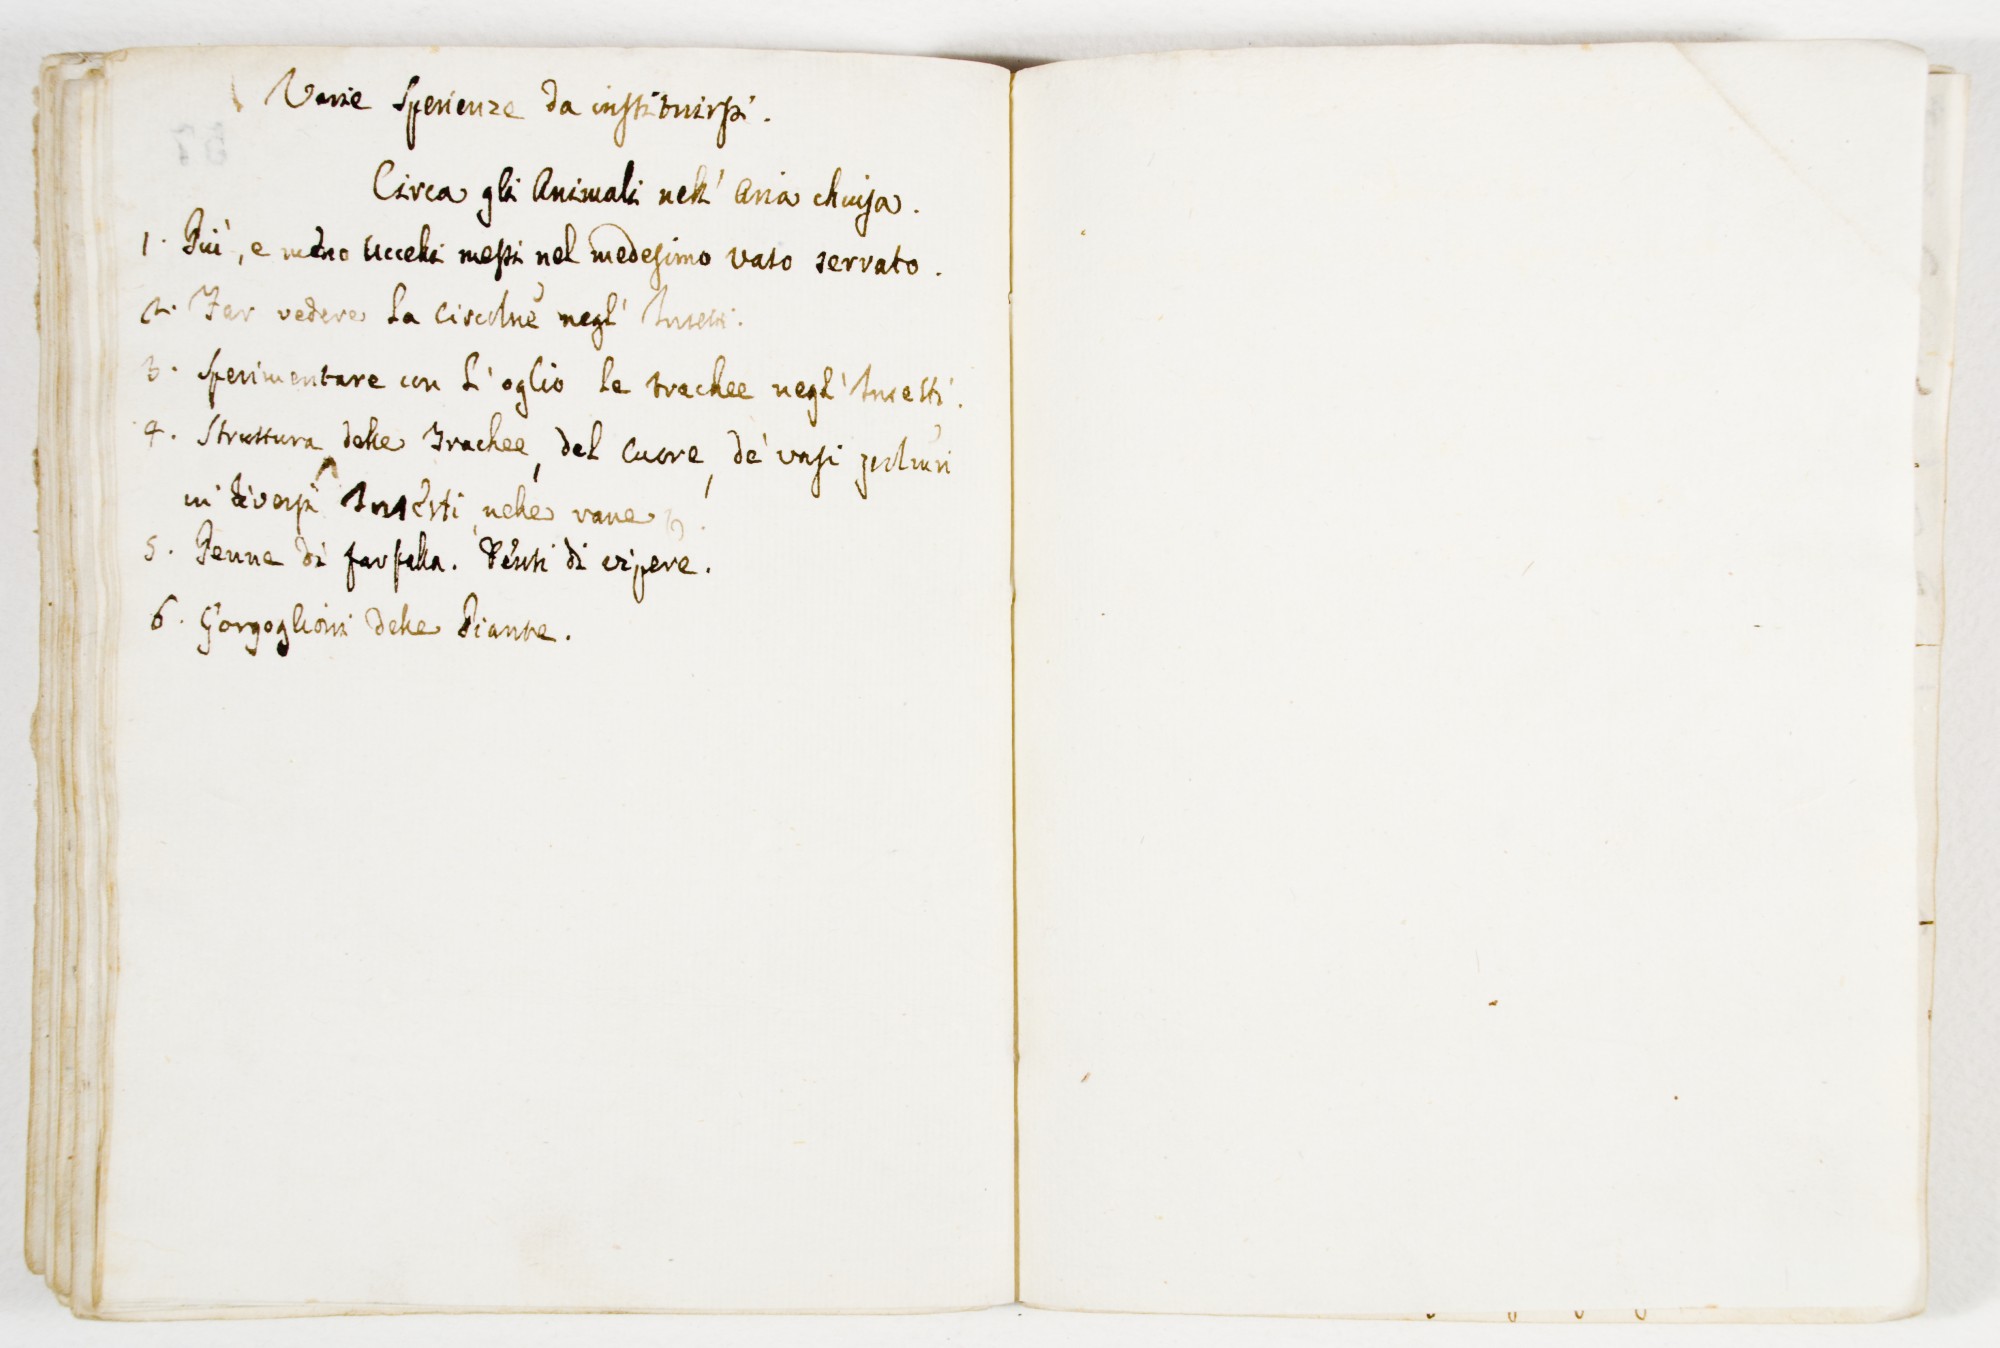 Varie sperienze da instituirsi.
Circa gli Animali nell' Aria chiusa.
1. Più, e meno Uccelli messi nel medesimo vaso serrato.
2. Far vedere la circolne negl' Insetti.
3. Sperimentare con l'oglio le trachee negl' Insetti.
4. Struttura delle Trachee, del Cuore, de' vasi
in diversi Insetti, nelle rane
5. Penne di farfalla. Denti di vipere.
6. Gorgoglioni delle Piante.